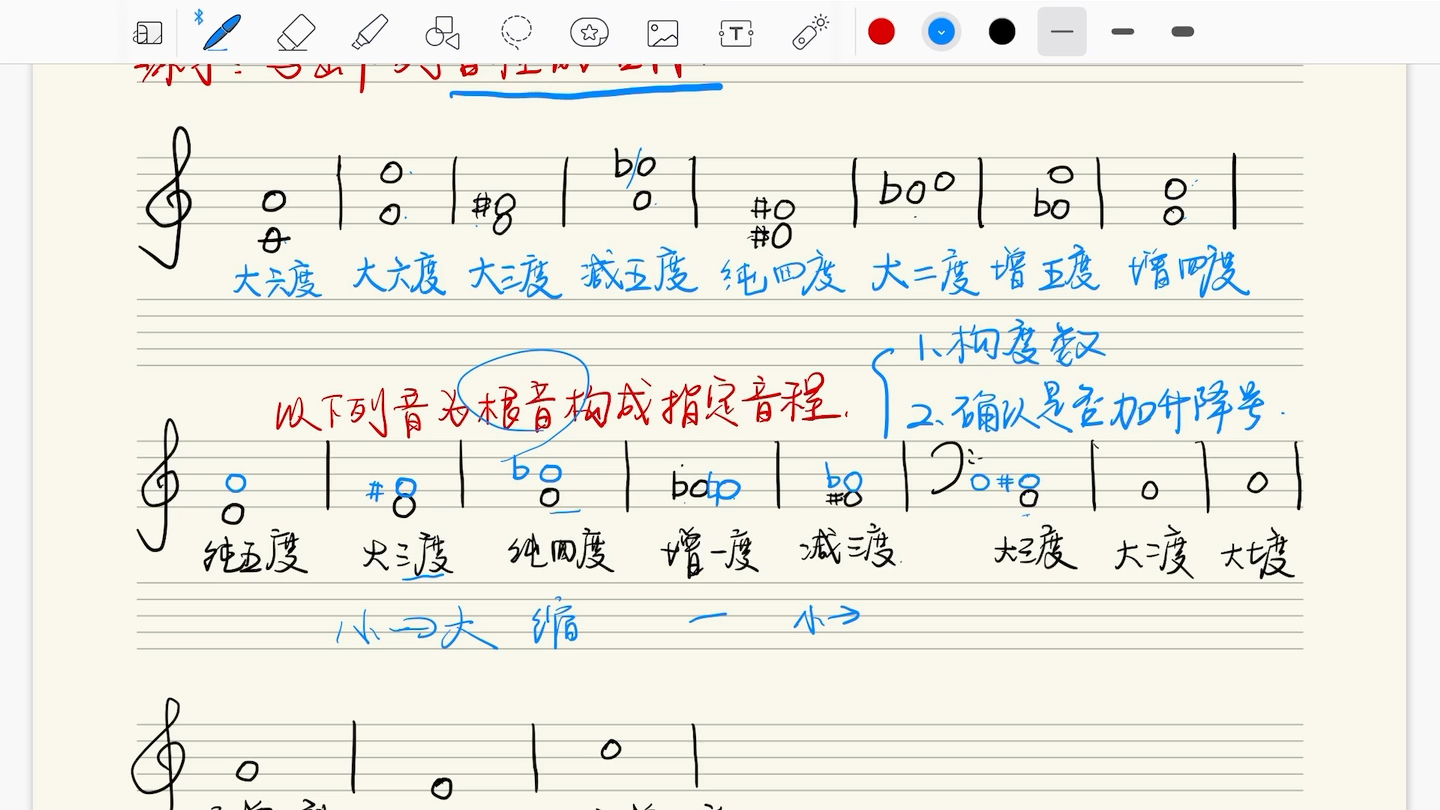 大六度 大六度 大三度 减五度 纯四度 大二度 增五度 增四度
1.构度数
以下列音为根音构成指定音程.
2.确认是否加升降号.
纯五度 大三度 纯四度 增一度 减三度. 大三度 大二度 大七度
小→大 缩 一 小→